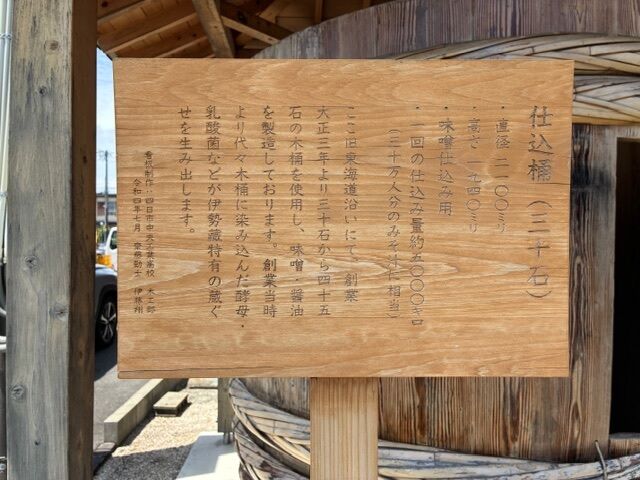 仕込桶(三十石)
・直径 二一〇〇ミリ
・高さ 一九四〇ミリ
・味噌仕込み用
・一回の仕込み量約五〇〇〇キロ
(三十万人分のみそ汁に相当)
ここ旧東海道沿いにて、創業
大正三年より三十石から四十五
石の木桶を使用し、味噌・醤油
を製造しております。創業当時
より代々木桶に染み込んだ酵母・
乳酸菌などが伊勢藏特有の蔵ぐ
せを生み出します。
看板制作:四日市中央工業高校 木工部
令和四年七月